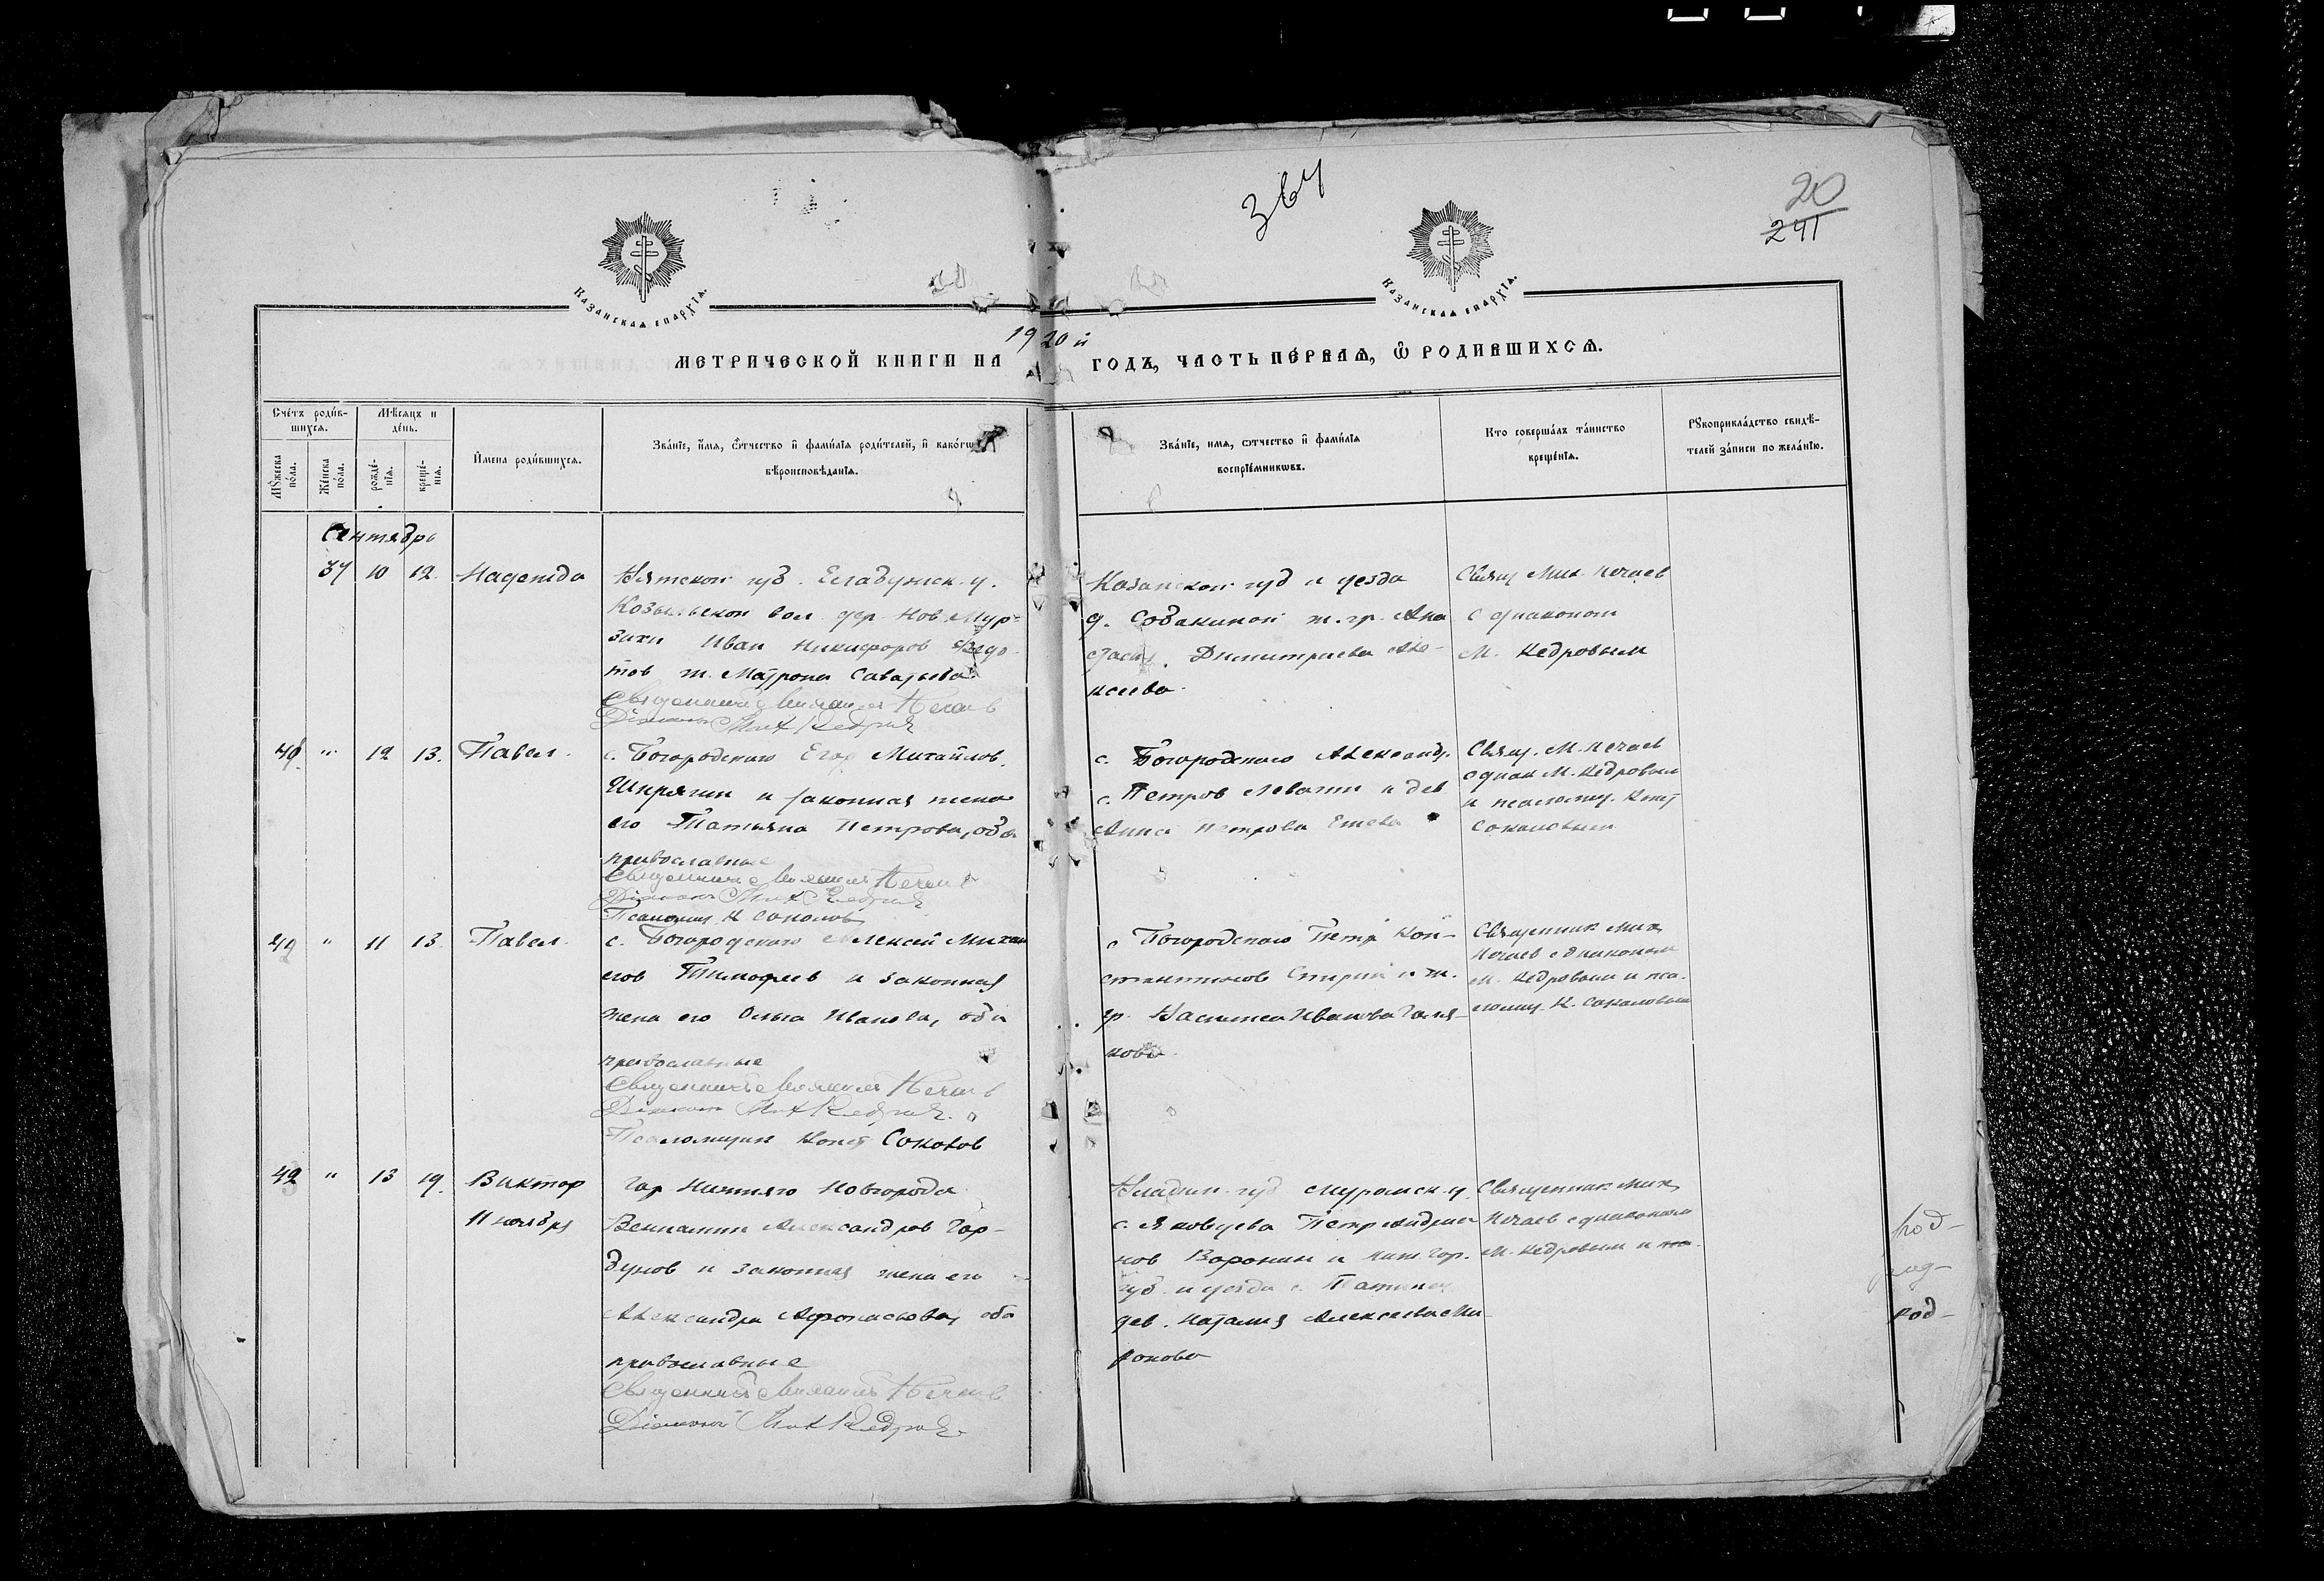 364
20
241
Казанская епархїѧ.
Казанская епархїѧ.
1920 й
МЕТРИЧЕСКОЙ КНИГИ НА ГОДЪ, ЧАСТЬ ПЕРВАѦ, Ѿ РОДИВШИХСѦ.
Счétъ роди́в-
шихсѧ.
Мѣсѧцъ и
де́нь.
Мꙋ́жеска по́ла.
Же́нска по́ла.
рожде́-нїѧ.
креще́-нїѧ.
И́мена роди́вшихсѧ.
Зва́нїе, и́мѧ, ѻ́тчество и҆ фами́лїѧ роди́телей, и҆ како́гѡ
вѣроисповѣ́данїѧ.
Зва́нїе, имѧ, ѻтчество и҆ фами́лїѧ
воспрїе́мникѡвъ.
Кто соверша́лъ та́инство
креще́нїѧ.
Рꙋкоприкла́дство свидѣ́-
телей за́писи по жела́нїю.
Сентябрь
37 10 12. Надежда
Вятской губ. Елабужск. у.
вол. дер. Нов. Мур-
зихи Иван Никифоров Федо-
тов ж. Матрона Саватьева
Священник Михаил Нечаев
Діакон Мих Кедров
Казанской губ и уезда
д. Собакиной ж. гр. Ана
стасия Димитриева Але-
ксеева.
Свящ Мих. Нечаев
с диаконом
М. Кедровым
" 12 13. Павел.
с. Богородскаго Егор Михайлов.
Ширяев и законная жена
его Татьяна Петрова, оба
православные
Священник Михаил Нечаев
Діакон Мих Кедров
Псаломщ К Соколов
с. Богородскаго Александр.
Петров и дев
Анна Петрова
Свящ. М. Нечаев
с диак М. Кедровым
и псаломщ. Конст
Соколовым
" 11 13. Павел.
с. Богородскаго Алексей Михаи
лов Тимофеев и законная
жена его Ольга Иванова, оба
православные
Священник Михаил Нечаев
Діакон Мих Кедров.
Псаломщик Конст Соколов
с Богородскаго Петр Кон-
стантинов и ж.
гр. Васса Иванова
кова.
Священник Мих
Нечаев с диаконом
М. Кедровым и пса-
ломщ. К. Соколовым
42 " 13 19. Виктор
11 ноября
Гор Нижняго Новгорода
Вениамин Александров Гор-
бунов и законная жена его
Александра Афанасьева, оба
православные
Священник Михаил Нечаев
Діакон Мих Кедров.
Владим. губ Муромск. у.
с. Яковцева Петр
нов Воронин и Нижгор.
губ. и уезда с.
дев. Наталия Алексеева Ми
ронова
Священник Мих
Нечаев с диаконом
М. Кедровым и
род-
род-